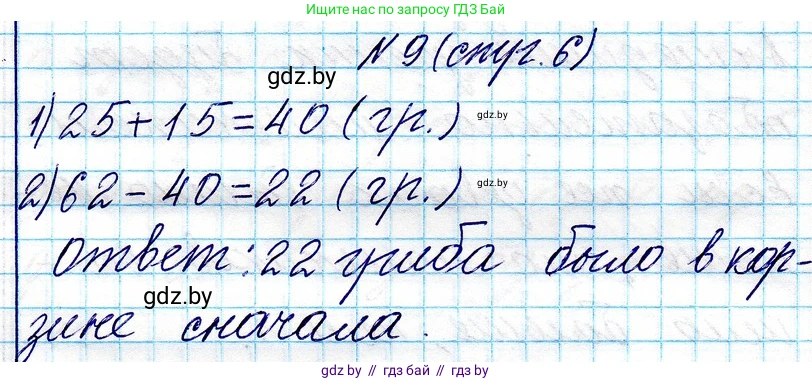 Ищите нас по запросу ГДЗ Бай
№ 9 (стр. 6)
gdz.by
1) 25 + 15 = 40 (гр.)
gdz.by
2) 62 - 40 = 22 (гр.)
gdz.by
Ответ: 22 гриба было в кор-
gdz.by
зине сначала.
gdz.by // гдз бай // gdz.by